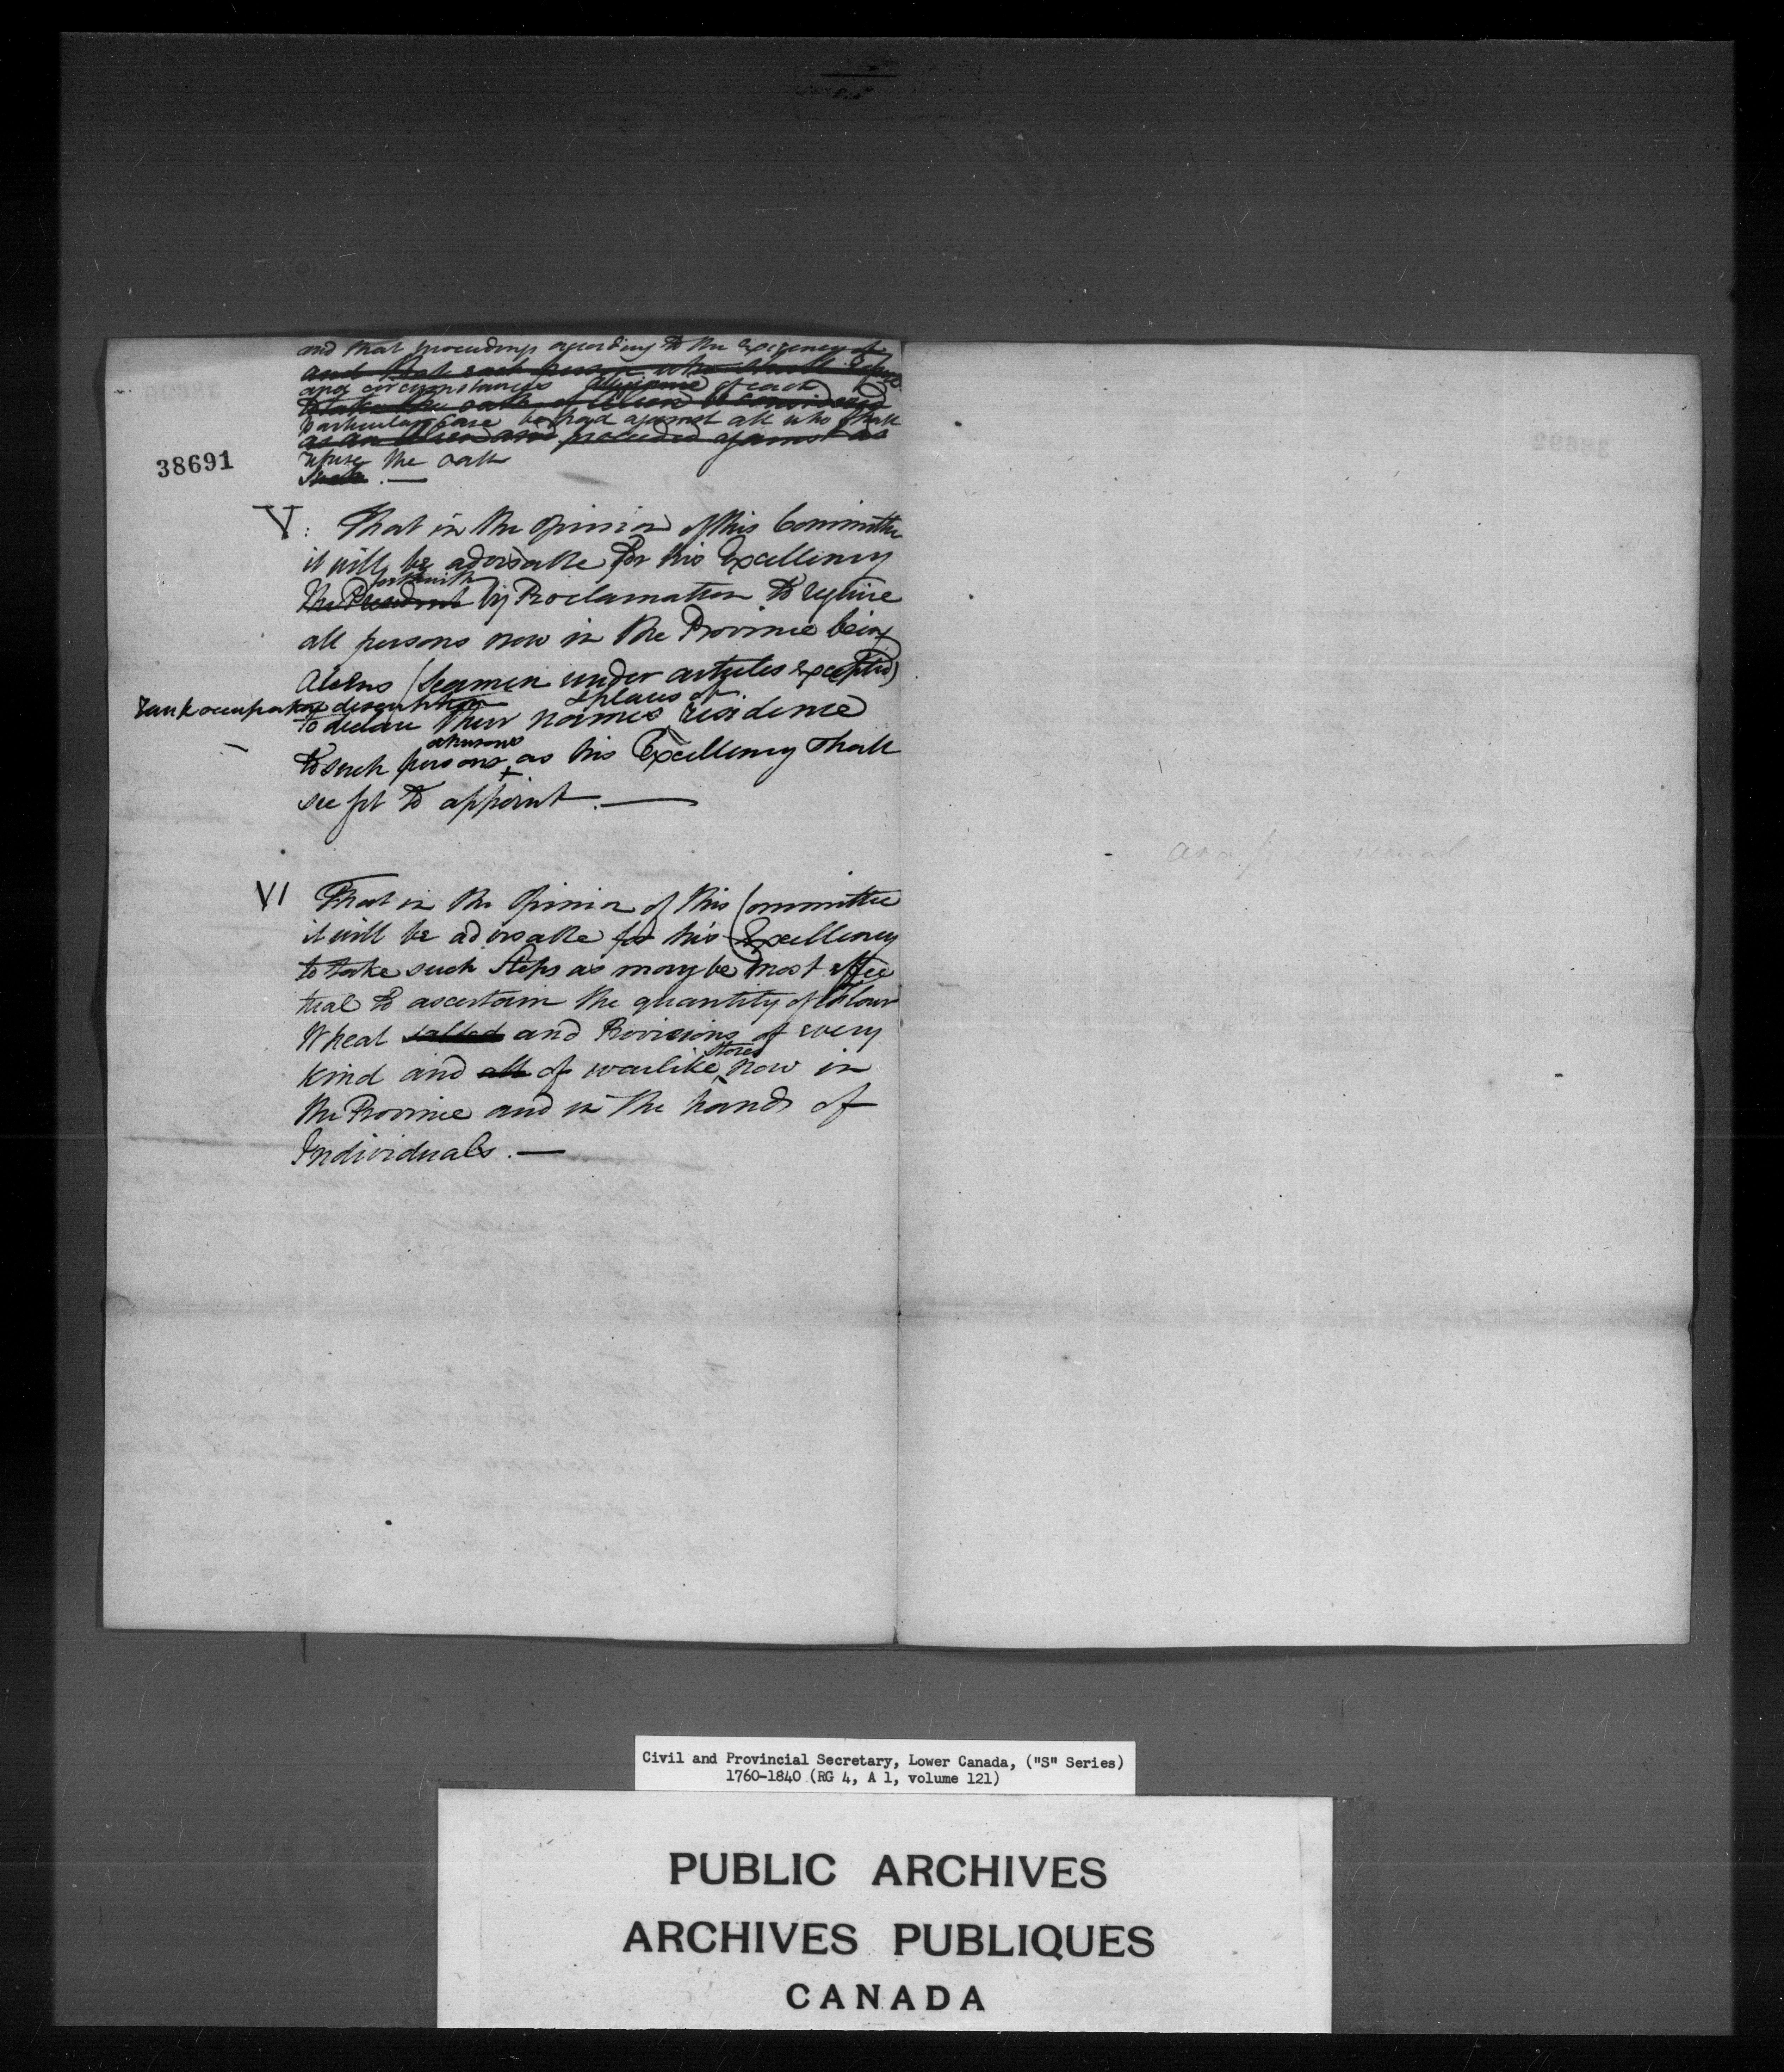 and that proceedings according to the Exigency of
and that each person who shall refuse
and circumstances of each
to take the oath of be considered
particular Case be had against all who shall
as an Alien and proceeded against as
38691
refuse the oath
Such. —
V: That in the Opinion of this Committee
it will be advisable for his Excellency
forthwith
the President by Proclamation to require
all persons now in the Province being
Aliens (Seamen under articles excepted)
& places of
Rank occupation description
to declare their names residence
to such persons as his Excellency shall
see fit to appoint. —
VI That in the Opinion of this Committee
it will be advisable for his Excellency
to take such Steps as may be most effec
tual to ascertain the quantity of Flour
Wheat salted and Provisions of every
stores
kind and all of warlike now in
the Province and in the hands of
Individuals. —
Civil and Provincial Secretary, Lower Canada, ("S" Series)
1760-1840 (RG 4, A 1, volume 121)
PUBLIC ARCHIVES
ARCHIVES PUBLIQUES
CANADA